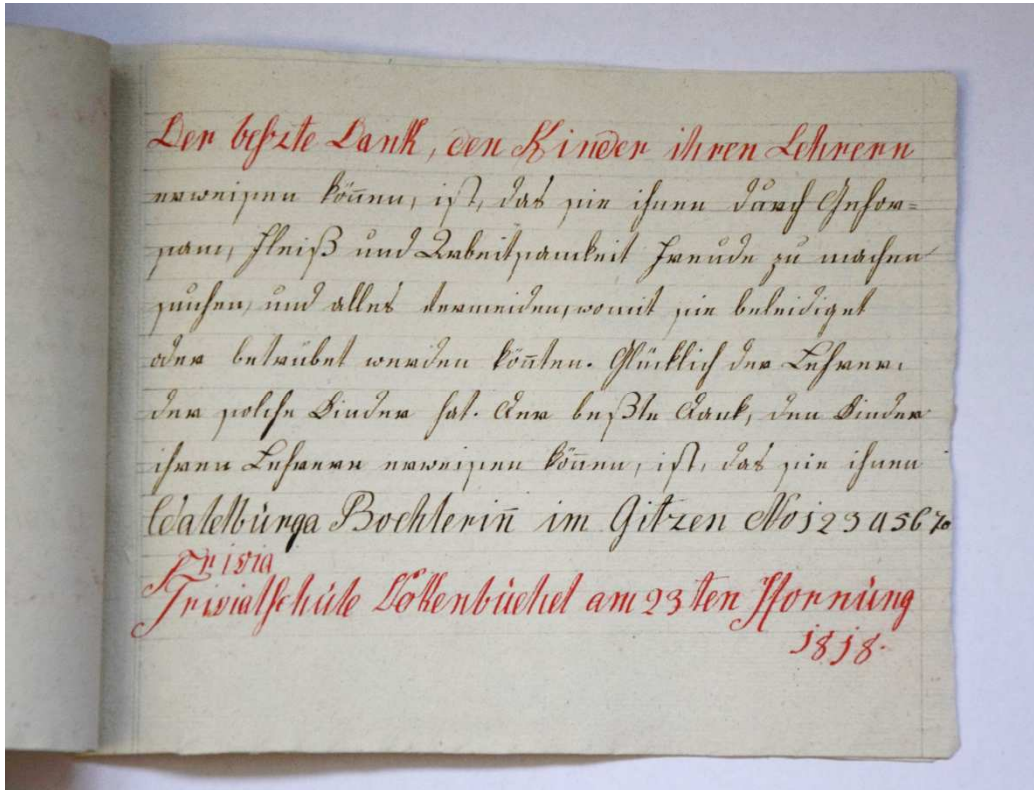 Der beßte Dank, den Kinder ihren Lehrern
erweisen können, ist, das sie ihnen durch Gehor=
sam, Fleiß und Arbeitsamkeit Freude zu machen
suchen, und alles vermeiden, womit sie beleidiget
oder betrübet werden könten. Glücklich der Lehrer,
der solche Kinder hat. Der beßte Dank, den Kinder
ihren Lehrern erweisen können, ist, das sie ihnen
im Gitzen No 1 2 3 4 5 6 7
Trivia
Trivialschule am 23ten Hornung
1818.